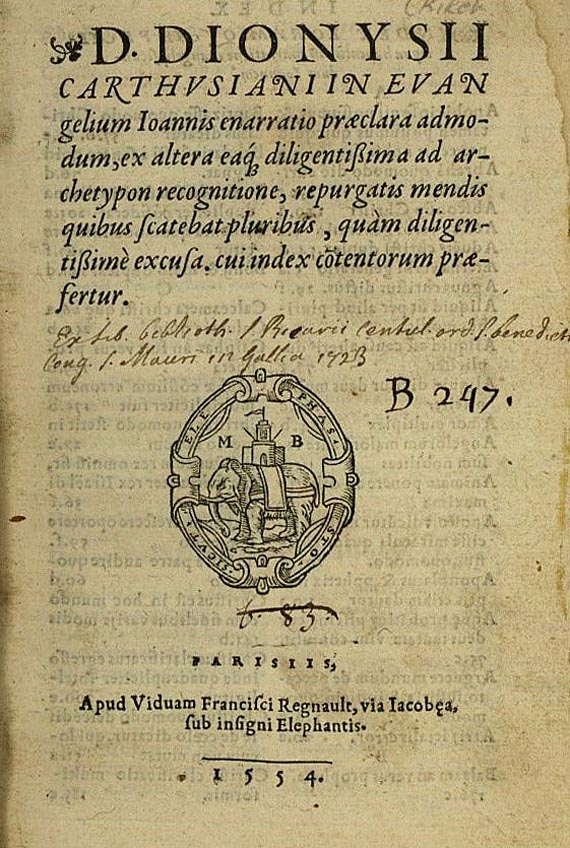 D. DIONYSII
CARTHVSIANI IN EVAN
gelium Ioannis enarratio præclara admo-
dum, ex altera eaq́ diligentißima ad ar-
chetypon recognitione, repurgatis mendis
quibus ſcatebat pluribus, quàm diligen-
tißimè excuſa. cui index cõtentorum præ-
fertur.
Ex lib. biblioth. S Ricarii Centul. ord. S. benedicti
Cong. S. Mauri in Gallia 1723
B 247.
ELE PHAS.
M B
SICVTI STO
6. 83.
PARISIIS,
Apud Viduam Franciſci Regnault, via Iacobęa,
ſub inſigni Elephantis.
1 5 5 4.